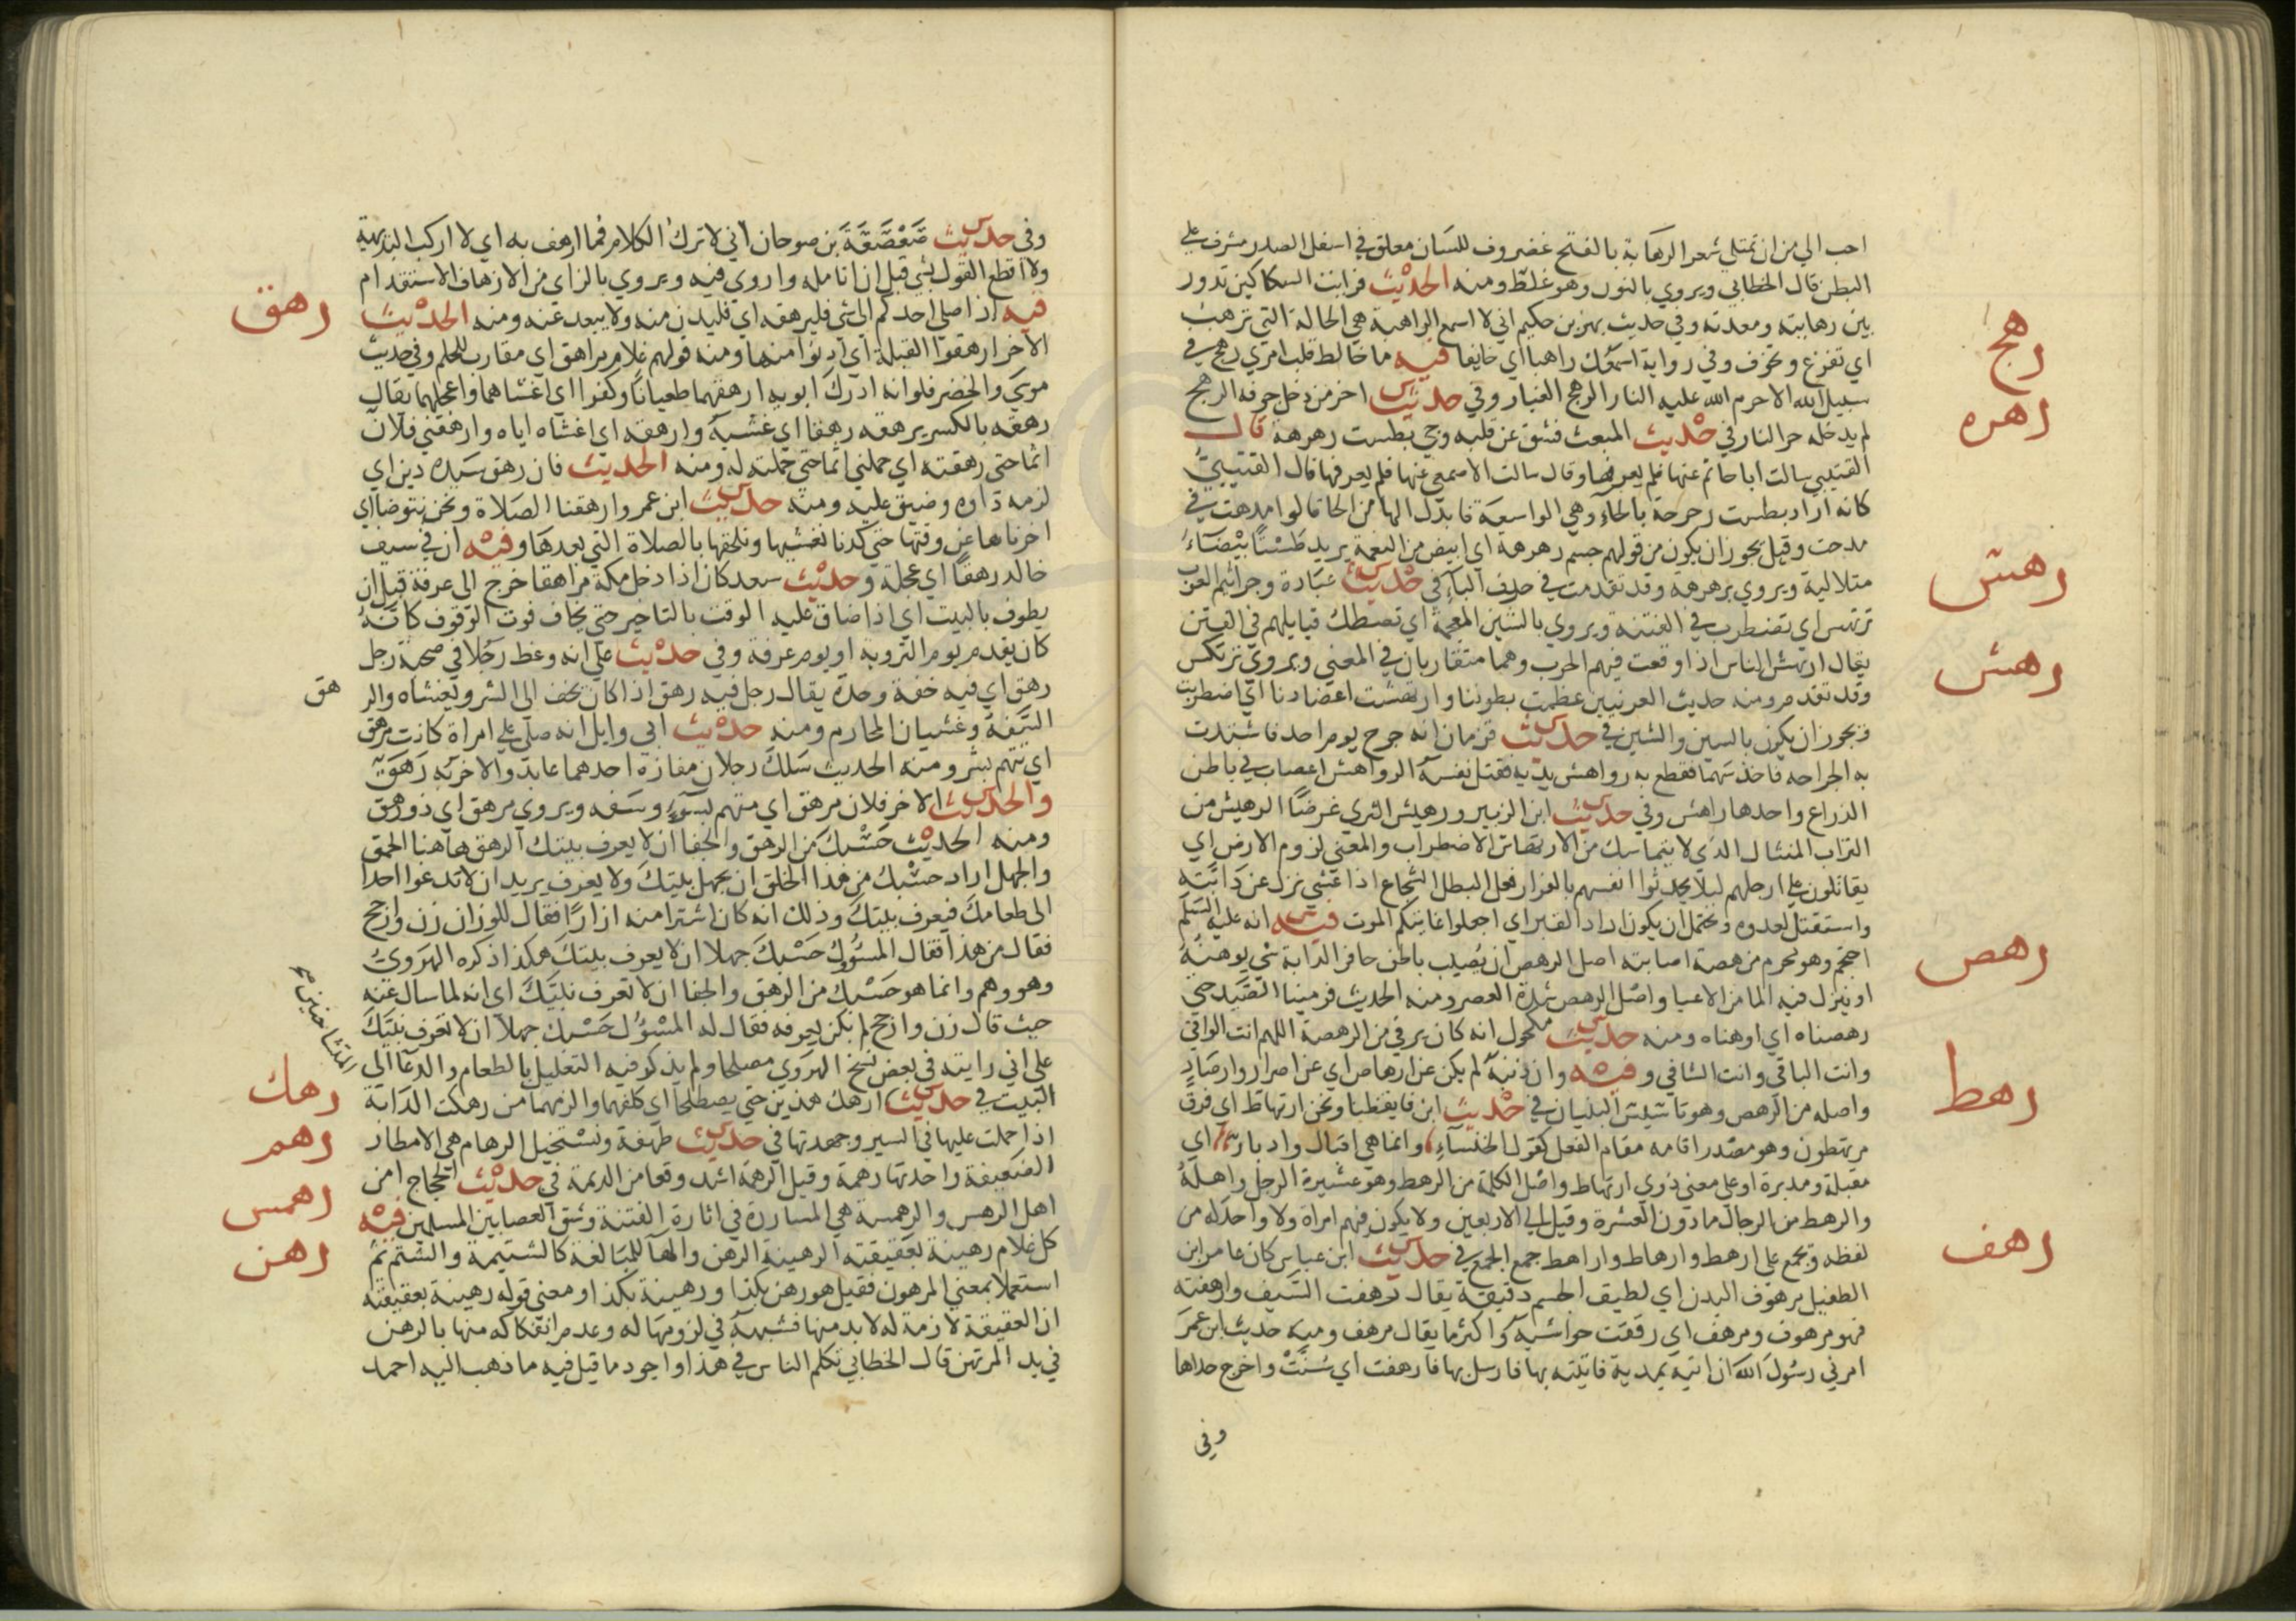 احب الي من ان تمتلي شعرا الرهابة بالفتح غضروف للسان معلق في اسفل الصدر مشرف علي
البطن قال الخطابي ويروي بالنون وهو غلط ومنه الحديث فرايت السكاكين تدور
بين رهابته ومعدته وفي حديث بهز بن حكيم اني لا اسمع الراهبة هي الحالة التي ترهب
اي تفزع وتخوف وفي رواية اسمعك راهبا اي خايفا فيه ما خالط قلب امري رهج في
رهج
سبيل الله الا حرم الله عليه النار الرهج الغبار وفي حديث اخر من دخل جوفه الرهج
لم يدخله حر النار في حديث المبعث فشق عن قلبه وجي بطست رهرهة قال
رهره
القتيبي سالت ابا حاتم عنها فلم يعرفها وقال سالت الاصمعي عنها فلم يعرفها قال القتيبي
كانه اراد بطست رحرحة بالحاء وهي الواسعة فابدل الها من الحا كما قالوا مدهت في
مدحت وقيل يجوز ان يكون من قولهم جسم رهرهة اي ابيض من النعمة يريد طستا بيضاء
متلالية ويروي برهرهه وقد تقدمت في حرف الباء في حديث عبادة وجراثيم العرب
رهس
ترتهس اي تضطرب في الفتنة ويروي بالشين المعجمة اي تصطك قبايلهم في الفتن
يقال ارتهش الناس اذا وقعت فيهم الحرب وهما متقاربان في المعني ويروي ترتكس
رهش
وقد تقدم ومنه حديث العرنيين عظمت بطوننا وارتهشت اعضادنا اي اضطربت
ويجوز ان يكون بالسين والشين في حديث قزمان انه جرح يوم احد فاشتدت
به الجراحه فاخذ سهما فقطع به رواهش يديه فقتل نفسه الرواهش اعصاب في باطن
الذراع واحدها راهش وفي حديث ابن الزبير ورهيش الثري غرضا الرهيش من
التراب المنثال الذي لا يتماسك من الارتهاش الاضطراب والمعني لزوم الارض اي
يقاتلون علي ارجلهم ليلا يحدثوا انفسهم بالفرار فعل البطل الشجاع اذا غشي نزل عن دابته
واستقتل لعدوه ويحتمل ان يكون اراد القبر اي اجعلوا غايتكم الموت فيه انه عليه السلم
احتجم وهو محرم من رهصة اصابته اصل الرهص ان يصيب باطن حافر الدابة شي يوهنه
رهص
او ينزل فيه الما من الاعيا واصل الرهص شدة العصر ومنه الحديث فرمينا الصيد حتي
رهصناه اي اوهناه ومنه حديث مكحول انه كان يرقي من الرهصة اللهم انت الواقي
وانت الباقي وانت الشافي وفيه وان ذنبه لم يكن عن ارهاص اي عن اصرار وارصاد
واصله من الرهص وهو تاسيس البنيان في حديث ابن فايقظنا ونحن ارتهاط اي فرق
رهط
مرتهطون وهو مصدر اقامه مقام الفعل كقول الخنساء وانما هي اقبال وادبار اي
مقبلة ومدبرة او علي معني ذوي ارتهاط واصل الكلمة من الرهط وهو عشيرة الرجل واهله
والرهط من الرجال ما دون العشرة وقيل الي الاربعين ولا يكون فيهم امراة ولا واحد له من
لفظه ويجمع علي ارهط وارهاط واراهط جمع الجمع في حديث ابن عباس كان عامر ابن
رهف
الطفيل مرهوف البدن اي لطيف الجسم دقيقة يقال رهفت السيف وارهفته
فهو مرهوف ومرهف اي رققت حواشيه واكثر ما يقال مرهف ومنه حديث ابن عمر
امرني رسول الله ان اتيه بمدية فاتيته بها فارسل بها فارهفت اي سنت واخرج حداها
وفي
وفي حديث صعصعة بن صوحان اني لا ترك الكلام فما ارهف به اي لا اركب البديهة
ولا اقطع القول بشي قبل ان اتامله واروي فيه ويروي بالزاي من الازهاف الاستقدام
فيه اذا صلي احدكم الي شي فليرهقه اي فليدن منه ولا يبعد عنه ومنه الحديث
رهق
الاخر ارهقوا القبلة اي ادنوا منها ومنه قولهم غلام مراهق اي مقارب للحلم وفي حديث
موسي والخضر فلو انه ادرك ابويه ارهقهما طغيانا وكفرا اي اغشاهما واعجلهما يقال
رهقه بالكسر يرهقه رهقا اي غشيه وارهقه اي اغشاه اياه وارهقني فلان
اثما حتي رهقته اي حملني اثما حتي حملته له ومنه الحديث فان رهق سيده دين اي
لزمه اداوه وضيق عليه ومنه حديث ابن عمر وارهقنا الصلاة ونحن نتوضا اي
اخرناها عن وقتها حتي كدنا نغشيها ونلحقها بالصلاة التي بعدها وفيه ان في سيف
خالد رهقا اي عجلة وحديث سعد كان اذا دخل مكة مراهقا خرج الي عرفة قبل ان
يطوف بالبيت اي اذا ضاق عليه الوقت بالتاخير حتي يخاف فوت الوقوف كانه
كان يقدم يوم التروية او يوم عرفة وفي حديث علي انه وعظ رجلا في صحبة رجل
رهق اي فيه خفة وحدة يقال رجل فيه رهق اذا كان يخف الي الشر ويغشاه والر
هق
السفه وغشيان المحارم ومنه حديث ابي وايل انه صلي علي امراة كانت ترهق
اي تتهم بشر ومنه الحديث سلك رجلان مفازة احدهما عابد والاخر به رهق
والحديث الاخر فلان مرهق اي متهم بسوء وسفه ويروي مرهق اي ذو رهق
ومنه الحديث حسبك من الرهق والجفا ان لا يعرف بيتك الرهق هاهنا الحمق
والجهل اراد حسبك من هذا الخلق ان يجهل بيتك ولا يعرف يريد ان لا تدعوا احدا
الي طعامك فيعرف بيتك وذلك انه كان اشترا منه ازارا فقال للوزان زن وارجح
فقال من هذا فقال المسؤول حسبك جهلا ان لا يعرف بيتك هكذا ذكره الهروي
وهو وهم وانما هو حسبك من الرهق والجفا ان لا تعرف نبيك اي انه لما سال عنه
حيث قال زن وارجح لم يكن يعرفه فقال له المسؤل حسبك جهلا ان لا تعرف نبيك
علي اني رايته في بعض نسخ الهروي مصلحا ولم يذكر فيه التعليل بالطعام والدعا الي
البيت في حديث المتشاحنين ارهك هذين حتي يصطلحا اي كلفهما والزمهما من رهكت الدابة
رهك
اذا حملت عليها في السير وجهدتها في حديث طهفة ونستخيل الرهام هي الامطار
رهم
الضعيفة واحدتها رهمة وقيل الرهمة اشد وقعا من الديمة في حديث الحجاج امن
اهل الرهس والرهمسة هي المسارة في اثارة الفتنة وشق العصا بين المسلمين فيه
رهمس
كل غلام رهينة بعقيقته الرهينة الرهن والها للمبالغة كالشتيمة والشتم ثم
رهن
استعملا بمعني المرهون فقيل هو رهن بكذا ورهينة بكذا ومعني قوله رهينة بعقيقته
ان العقيقة لازمة له لا بد منها فشبهه في لزومها له وعدم انفكاكه منها بالرهن
في يد المرتهن قال الخطابي تكلم الناس في هذا واجود ما قيل فيه ما ذهب اليه احمد